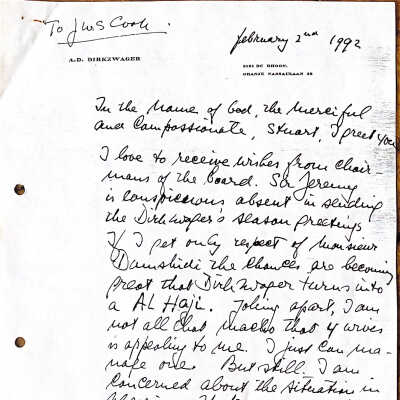 To JWS Cook.
february 2nd 1992
A.D. DIRKZWAGER
3161 DC RHOON,
ORANJE NASSAULAAN 28
In the Name of God, the Merciful
and Compassionate, Stuart, I greet you
I love to receive wishes from chair-
mans of the board. Sir Jeremy
is conspicuous absent in sending
the Dirkzwager's season greetings
If I get only respect of Monsieur
Damshidi the chances are becoming
great that Dirkzwager turns into
a AL Haji. Joking apart, I am
not all that macho that 4 wives
is appealing to me. I just can ma-
nage one. But still. I am
concerned about the situation in